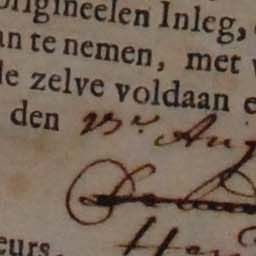 origineelen Inleg,
an te nemen, met
le zelve voldaan e
den 23.r Aug
eurs.